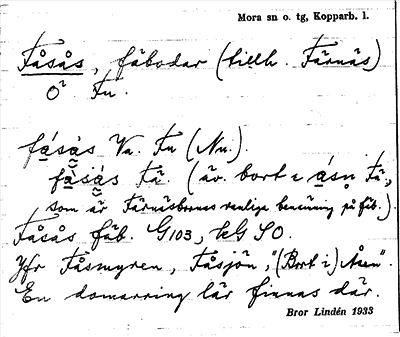 Mora sn o. tg, Kopparb. l.
Fåsås, fäbodar (tillh. Färnäs)
O² Fu.
fásàs Va. Fu (Nu.).
fàsás Fä. (äv. bort i ásn Fä.,
som är Färnäsbornas vanliga benäming på fäb.).
Fåsås fäb. G103, kG SO.
Jfr Fåsmyren, Fåsjön, "(Bort i) Åsen".
En domarring lär finnas där.
Bror Lindén 1933